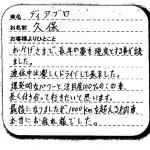 車名：ディアブロ
お名前 久保
お客様よりひとこと
おかげさまで、長年の夢を現実する事が出来
ました。
連休中は楽しくドライブして来ました。
爆発的なパワーで注目度100%のこの車、
長く付き合って行きたいと思います。
最後になりましたが1000kmを超える納車、
本当にお疲れ様でした。